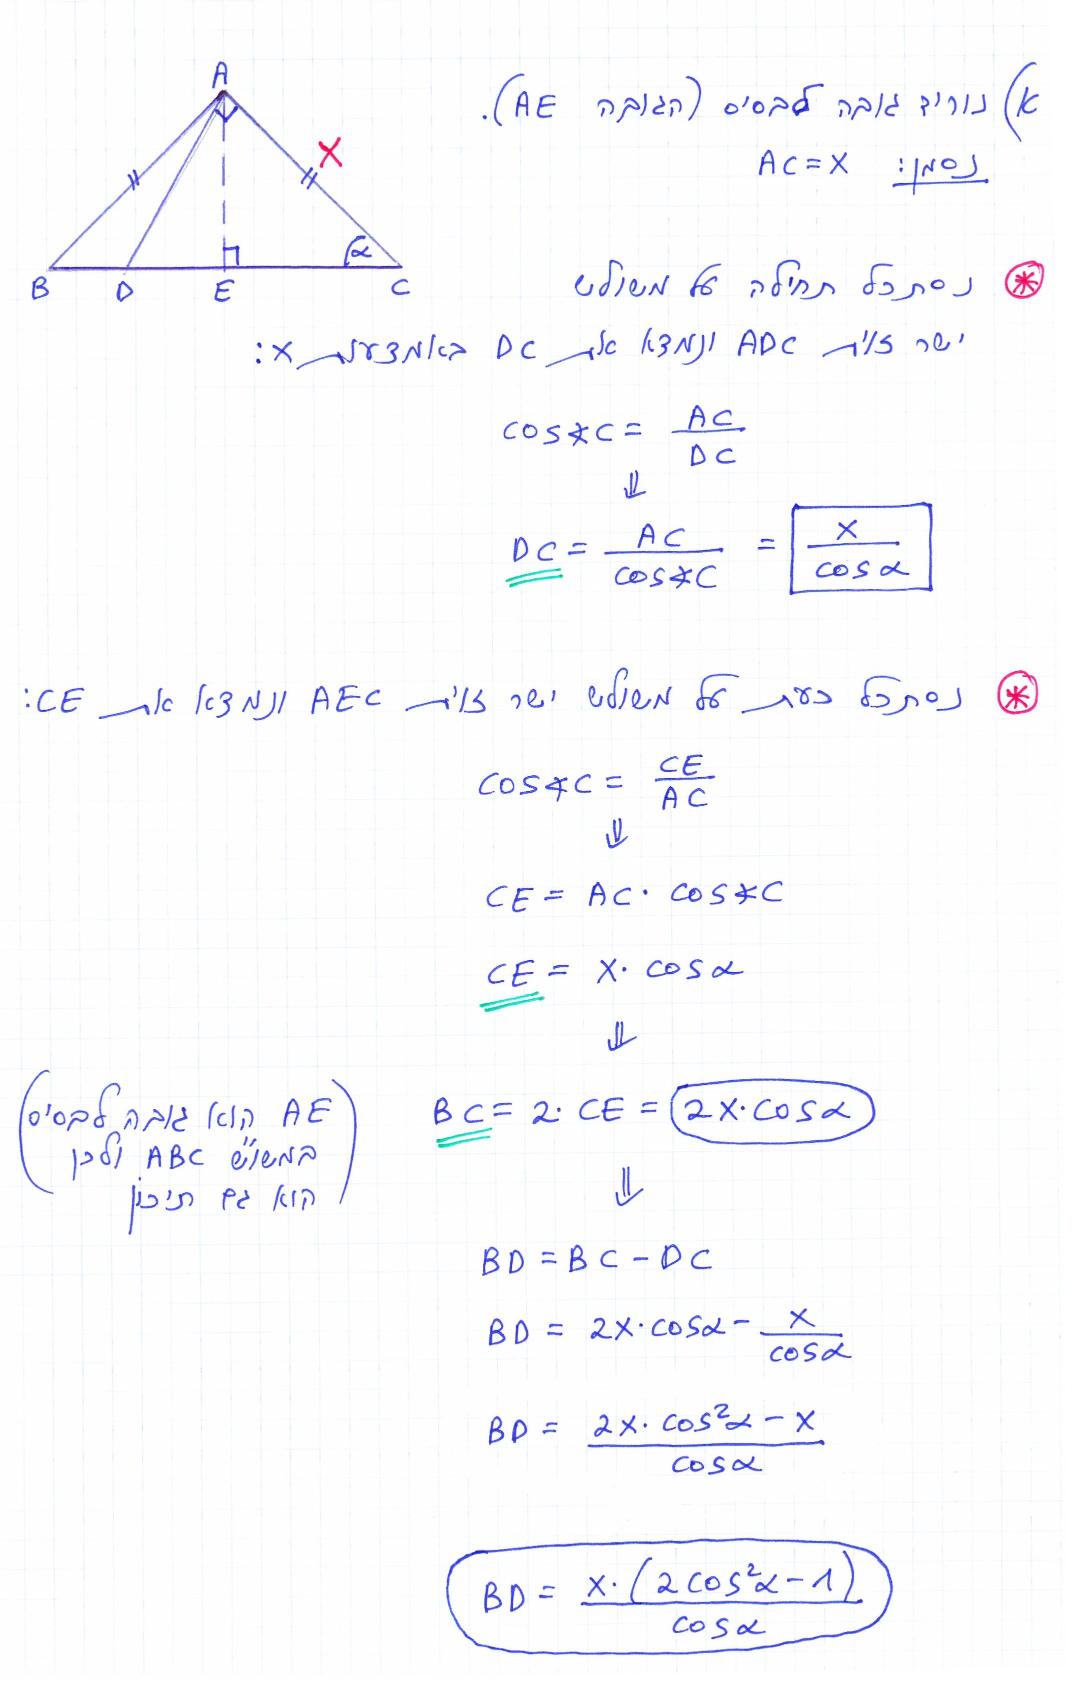 א) נוריד גובה לבסיס (הגובה AE).
נסמן: AC = X
A
X
α
B D E C
נסתכל תחילה על משולש
ישר זוית ADC ונמצא את DC באמצעות X:
cos∢C = AC / DC
⇓
DC = AC / cos∢C = X / cosα
נסתכל כעת על משולש ישר זוית AEC ונמצא את CE:
cos∢C = CE / AC
⇓
CE = AC · cos∢C
CE = X · cosα
⇓
BC = 2 · CE = 2X · cosα
(AE הוא גובה לבסיס
במשו"ש ABC ולכן
הוא גם תיכון)
⇓
BD = BC − DC
BD = 2X · cosα − X / cosα
BD = 2X · cos²α − X / cosα
BD = X · (2cos²α − 1) / cosα